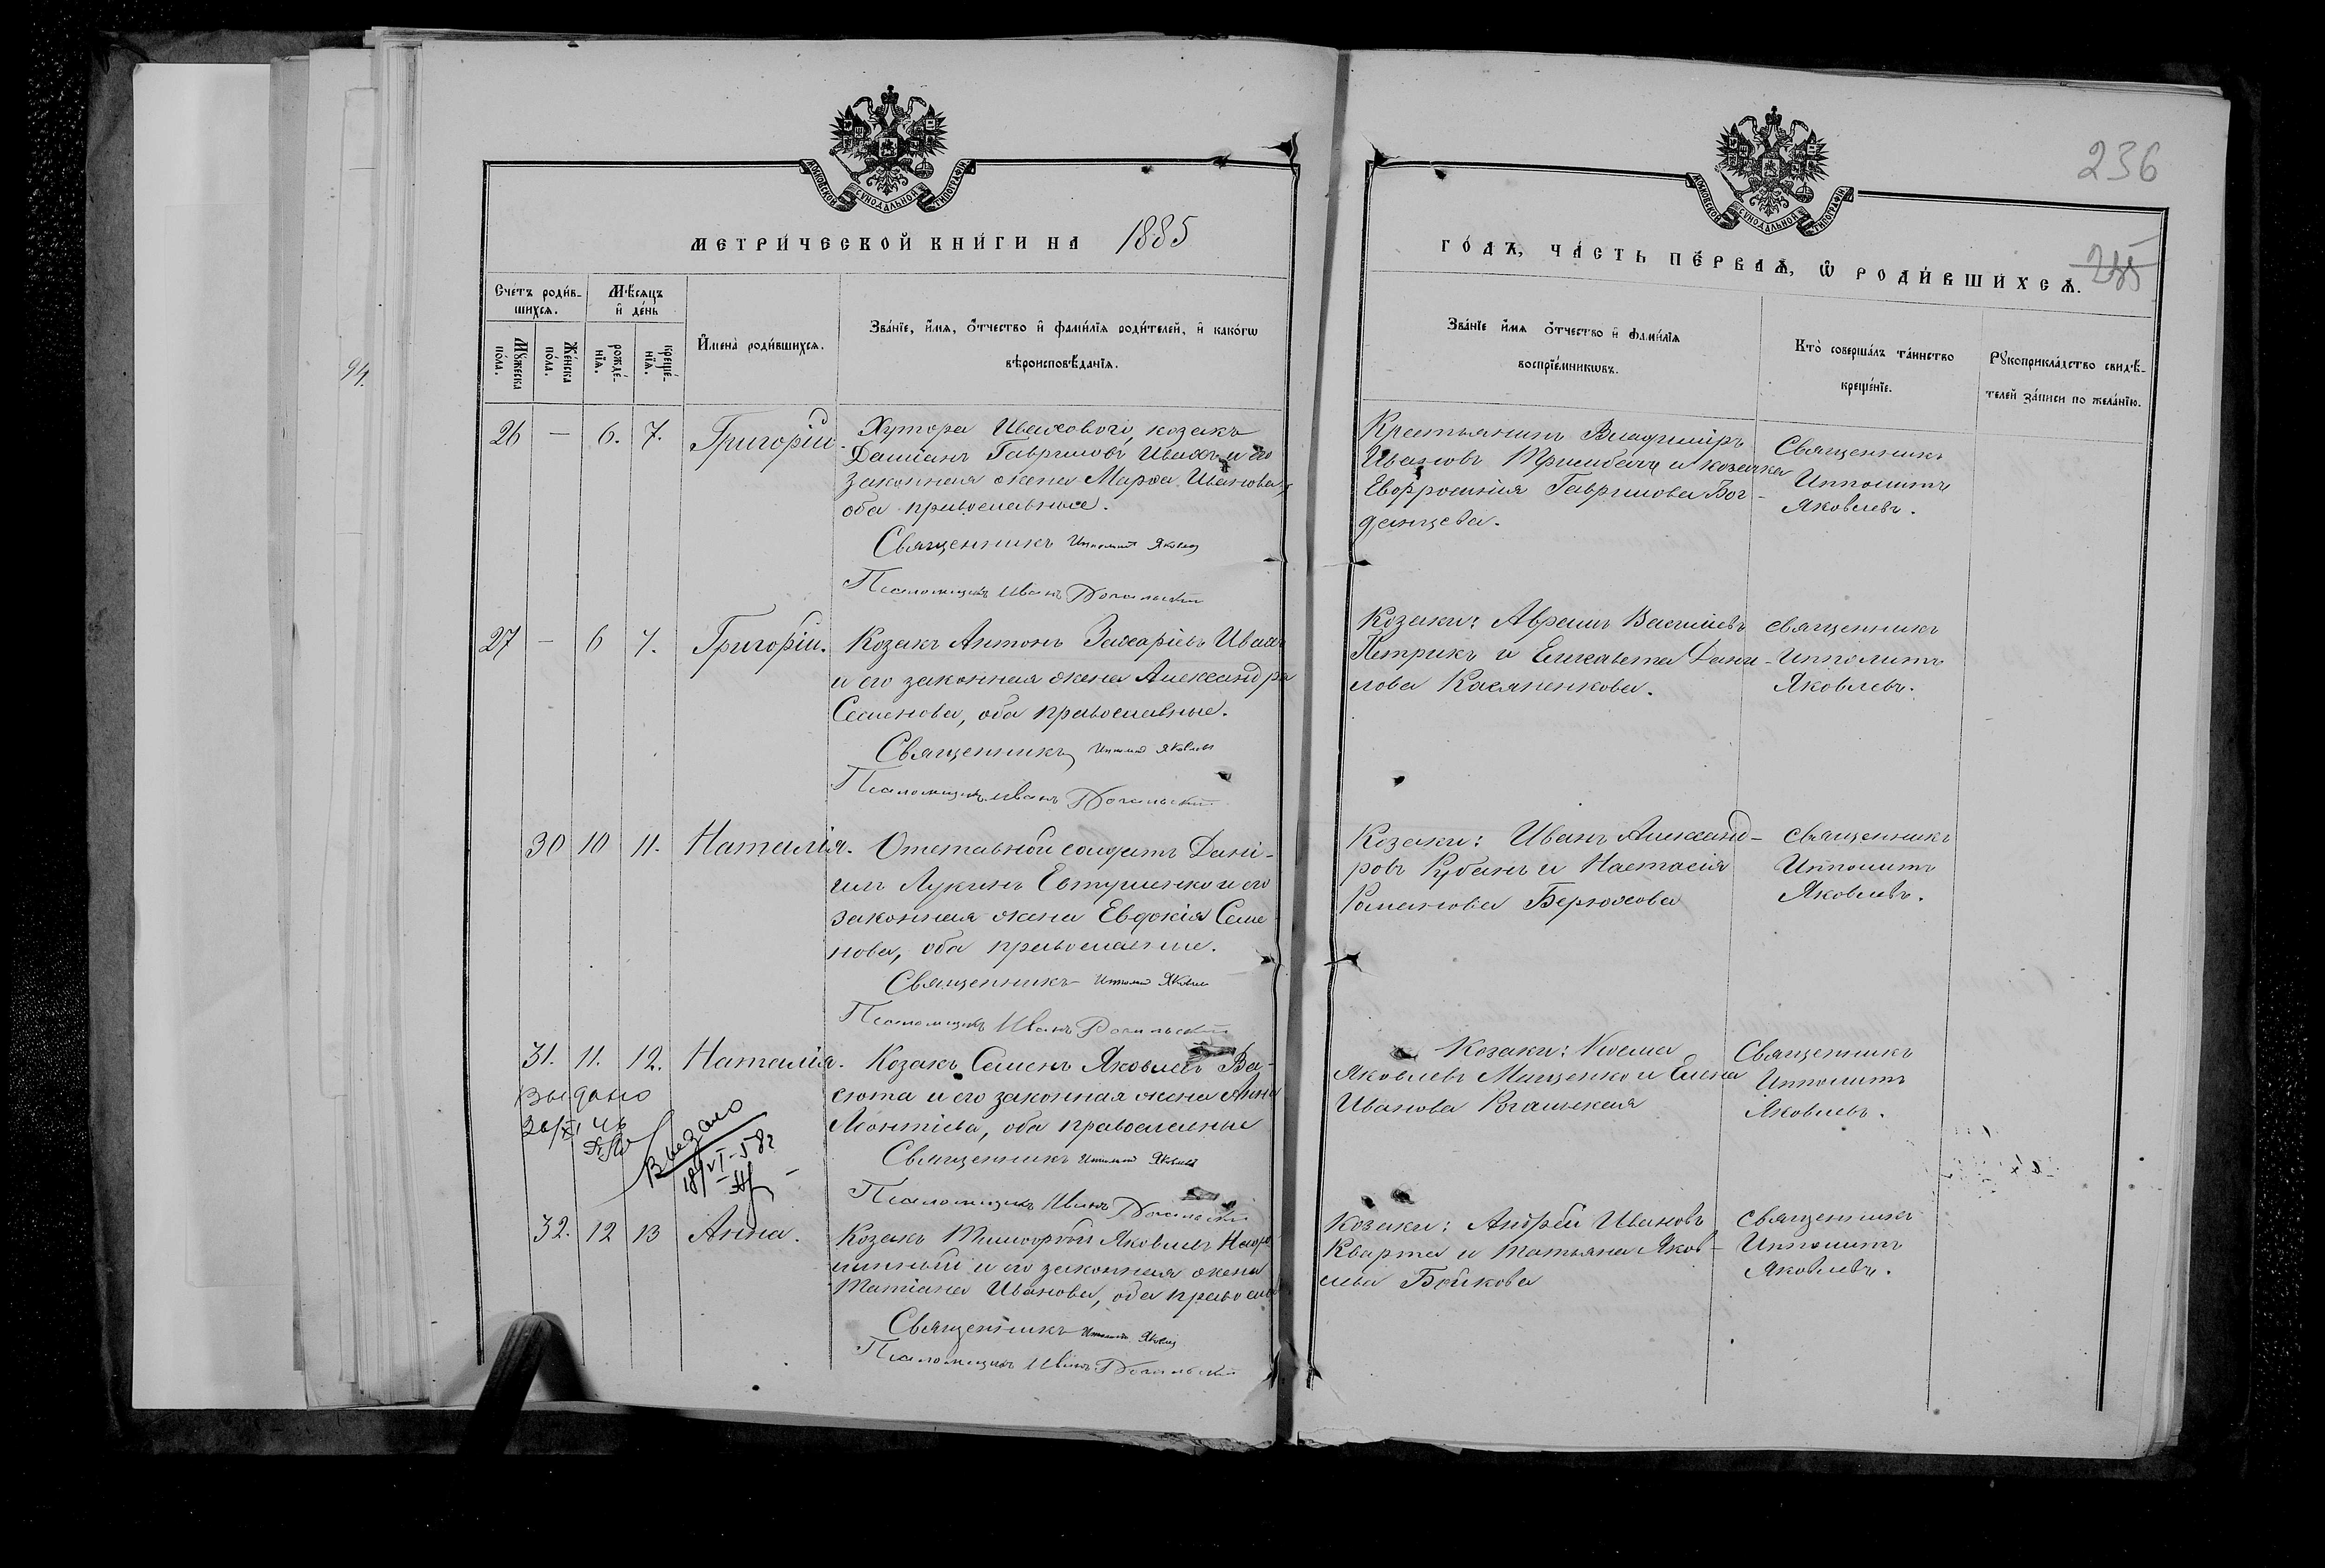 94.
МОСКОВСКОЙ СѴНОДАЛЬНОЙ ТИПОГРАФІИ
МЕТРИЧЕСКОЙ КНИГИ НА 1885
Счетъ родив-
шихсѧ.
Мѣсѧцъ
и день
Мꙋжеска
пола.
Женска
пола.
рожде-
нїѧ.
креще-
нїѧ.
Имена родившихсѧ.
Званїе, имѧ, ѻтчество и фамилїѧ родителей, и какогѡ
вѣроисповѣданїѧ.
26 — 6. 7. Григорій.
Хутора Ивахового, козакъ
Даміанъ Гавриловъ Ивахъ и его
законная жена Марѳа Иванова,
оба православные.
Священникъ Ипполит Яковлев
Псаломщикъ Иванъ
27 — 6 7. Григорій.
Козакъ Антонъ Захаріевъ Ивахъ
и его законная жена Александра
Семенова, оба православные.
Священникъ Ипполит Яковлев
Псаломщикъ Иванъ
30 10 11. Наталія.
Отставной солдатъ Дані-
илъ Лукинъ Евтушенко и его
законная жена Евдокія Семе
нова, оба православные.
Священникъ Ипполит Яковлев
Псаломщикъ Иванъ
31. 11. 12. Наталія.
Козакъ Семенъ Яковлевъ Ва-
сюта и его законная жена Анна
Леонтіева, оба православные
Священникъ Ипполит Яковлев
Псаломщикъ Иванъ
Выдано
Выдано
18/VI-58г
32. 12 13 Анна.
Козакъ Тимоѳей Яковлевъ
и его законная жена
Татіана Иванова, оба православ
Священникъ Ипполит Яковлев
Псаломщикъ Иванъ
236
МОСКОВСКОЙ СѴНОДАЛЬНОЙ ТИПОГРАФІИ
ГОДЪ, ЧАСТЬ ПЕРВАѦ, Ѡ РОДИВШИХСѦ.
235
Званїе имѧ ѻтчество и фамилїѧ
воспрїемникѡвъ.
Кто совершалъ таинство
крещенїе.
Рꙋкоприкладство свидѣ-
телей записи по желанїю.
Крестьянинъ Владиміръ
Ивановъ Трикбачъ и козачка
Евфросинія Гаврилова Бог-
данцева.
Священникъ
Ипполитъ
Яковлевъ.
Козаки: Аврамъ Васильевъ
Петрикъ и Елисавета Дани-
лова Касяненкова.
священникъ
Ипполитъ
Яковлевъ.
Козаки: Иванъ Александ-
ровъ Рубанъ и Настасія
Романова Берюхова
священникъ
Ипполитъ
Яковлевъ.
Козаки: Косма
Яковлевъ Мащенко и Елена
Иванова Рогальская
Священникъ
Ипполитъ
Яковлевъ.
Козаки: Андрей Ивановъ
Кварта и Татьяна Яков-
лева Бѣйкова
Священникъ
Ипполитъ
Яковлевъ.